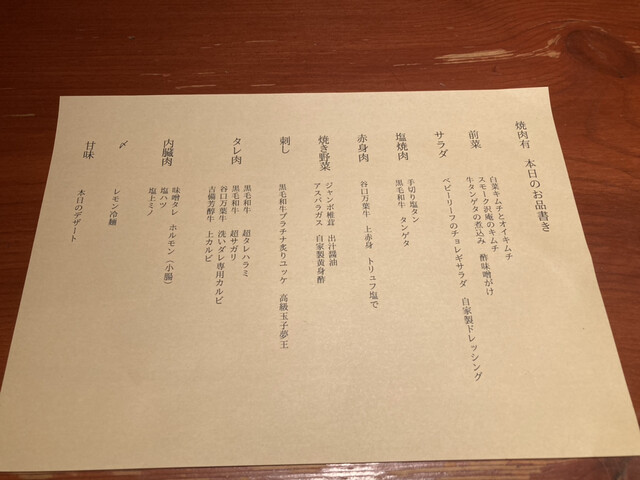 焼肉有 本日のお品書き
前菜
白菜キムチとオイキムチ
スモーク沢庵のキムチ
牛タンゲタの煮込み 酢味噌がけ
サラダ
ベビーリーフのチョレギサラダ 自家製ドレッシング
塩焼肉
手切り塩タン
黒毛和牛 タンゲタ
赤身肉
谷口万葉牛 上赤身 トリュフ塩で
焼き野菜
ジャンボ椎茸 出汁醤油
アスパラガス 自家製黄身酢
刺し
黒毛和牛プラチナ炙りユッケ 高級玉子夢王
タレ肉
黒毛和牛 超タレハラミ
黒毛和牛 超サガリ
谷口万葉牛 洗いダレ専用カルビ
吉備芳醇牛 上カルビ
内臓肉
味噌タレ ホルモン（小腸）
塩ハツ
塩上ミノ
〆
レモン冷麺
甘味
本日のデザート